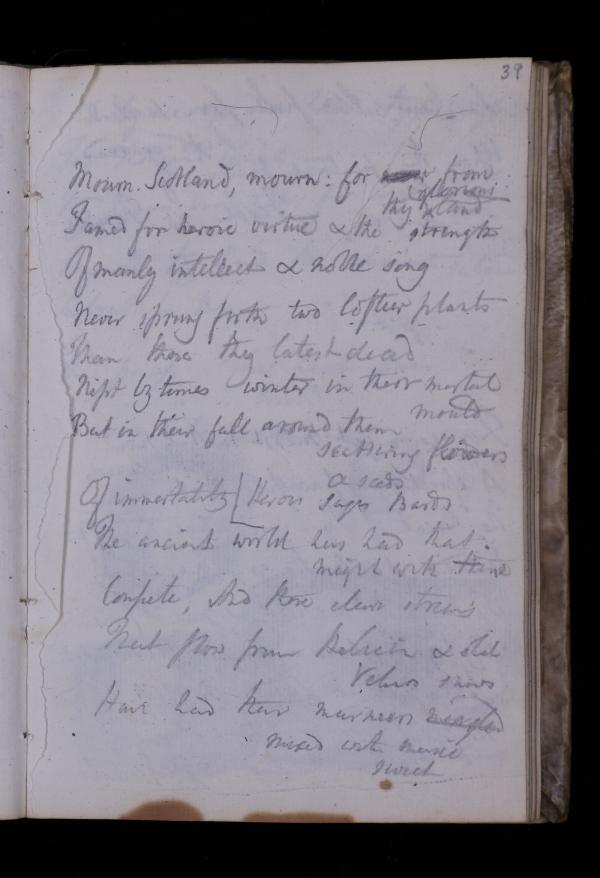 39
Mourn. Scotland, mourn: for from
glorious
thy land
Famed for heroic virtue & the strength
Of manly intellect & noble song
Never sprung forth two loftier plants
Than these thy latest dead
Nipt by times winter in their mortal
mould
But in their fall around them
scattering flowers
& seeds
Of immortality Heroes sages Bards
The ancient world has had that
might with thine
Compete, And those clear streams
That flow from & old
snows
Have had their murmurs mingled
mixed with music
sweet